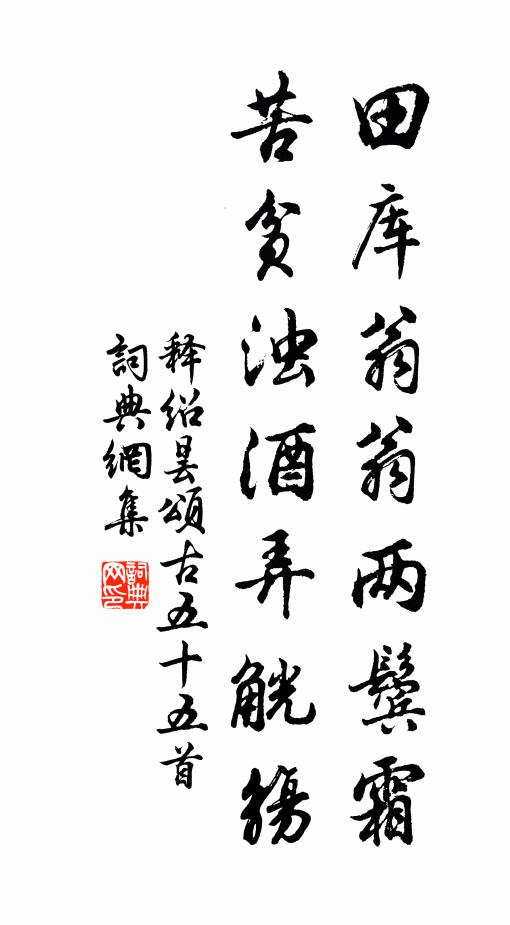 田库翁翁两鬓霜
苦贫浊酒弄觥觞
释绍昙颂古五十五首
詞典網集
詞典
网印